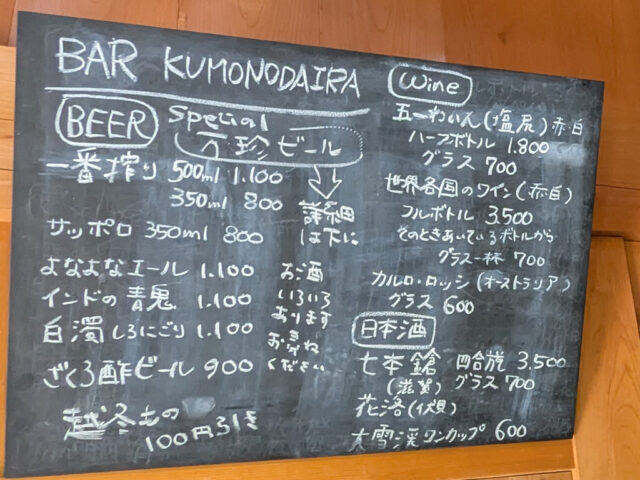 BAR KUMONODAIRA
BEER Special
万珍ビール
一番搾り 500ml 1.100
350ml 800
サッポロ 350ml 800
詳細
は下に
よなよなエール 1.100
インドの青鬼 1.100
白濁しろにごり 1.100
ざくろ酢ビール 900
越冬もの
100円引き
お酒
いろいろ
あります
お尋ね
ください
Wine
五一わいん(塩尻)赤・白
ハーフボトル 1.800
グラス 700
世界各国のワイン(赤・白)
フルボトル 3.500
そのときあいているボトルから
グラス一杯 700
カルロ・ロッシ(オーストラリア)
グラス 600
日本酒
七本鎗 四合瓶 3.500
(滋賀) グラス 700
花洛(伏見)
大雪渓ワンカップ 600